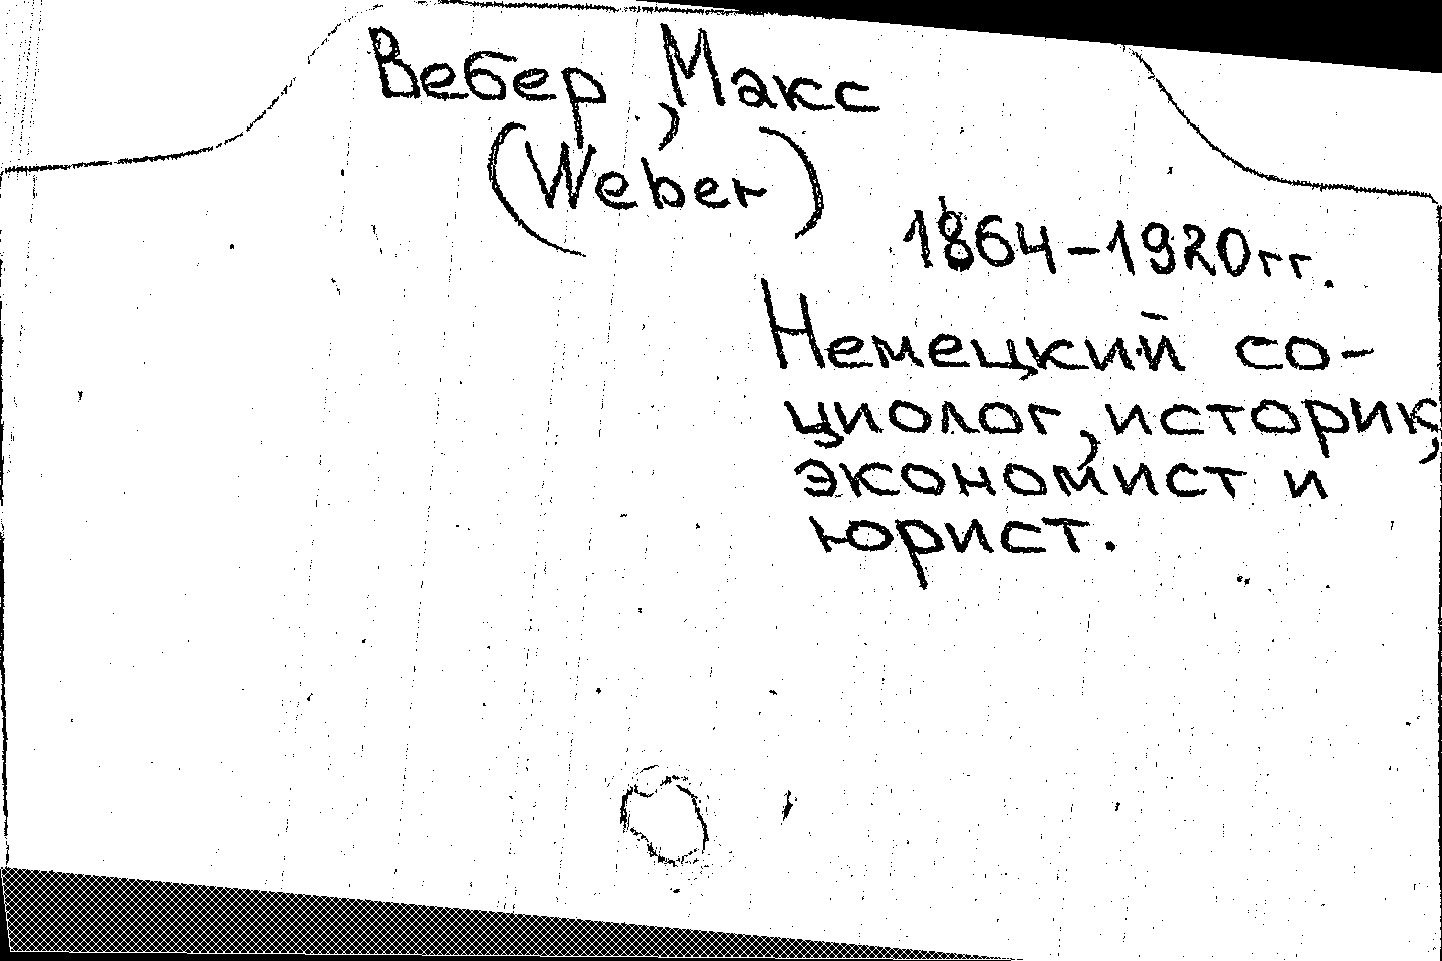 Вебер, Макс
(Weber)
1864-1920гг.
Немецкий со-
циолог, историк,
экономист и
юрист.